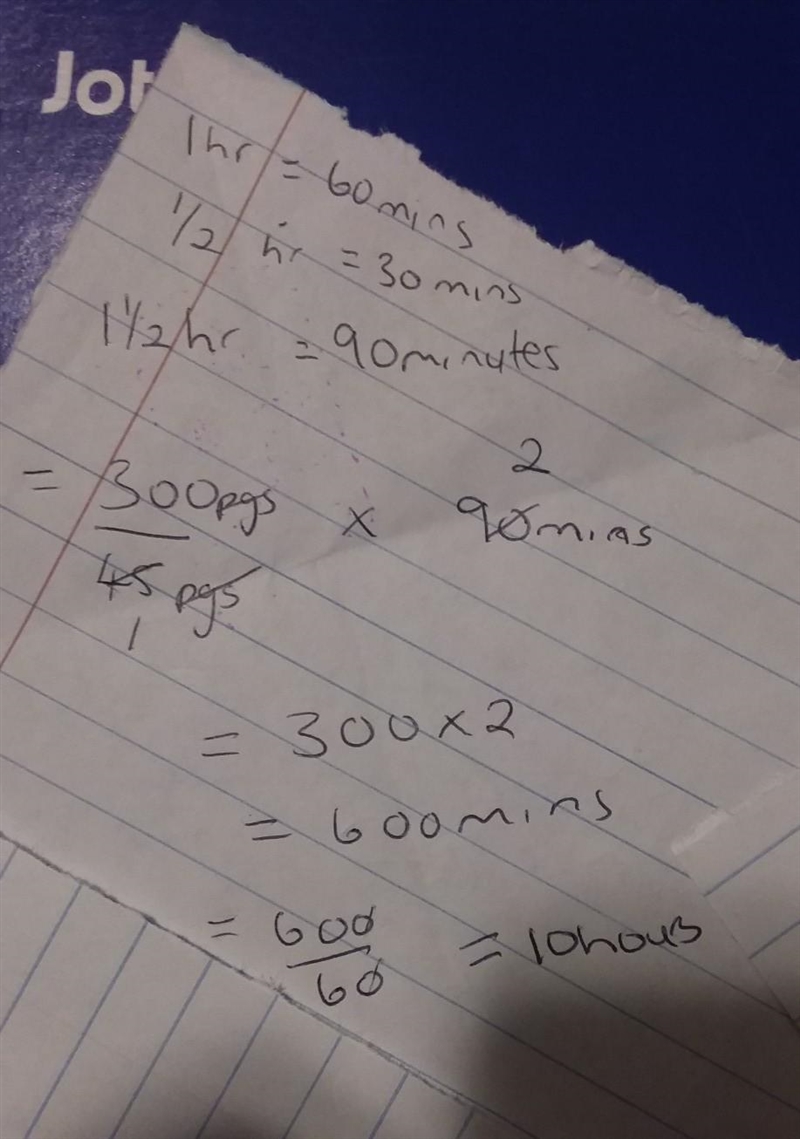 Jot
1hr = 60mins
1/2 hr = 30mins
1 1/2 hr = 90minutes
2
= 300pgs × 90mins
45 pgs
1
= 300 × 2
= 600mins
= 600 = 10hours
60